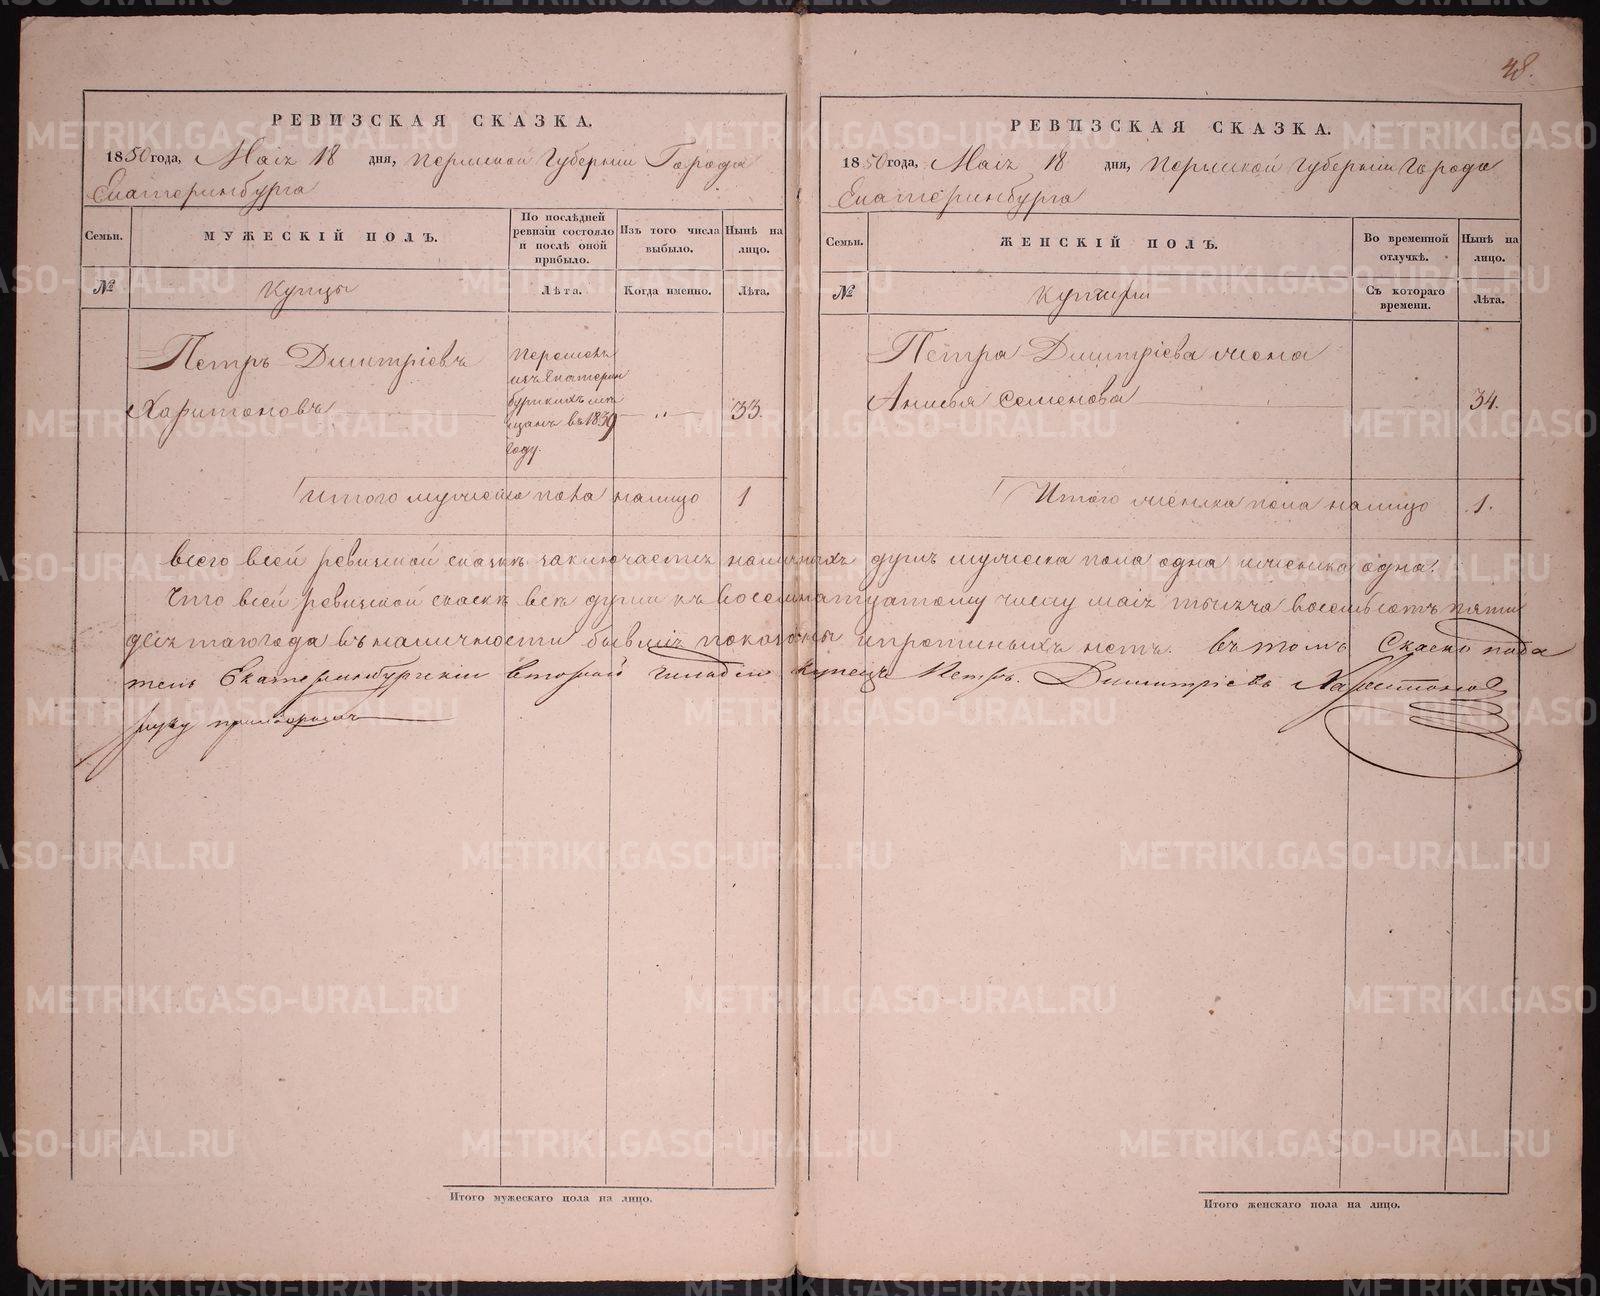 48.
РЕВИЗСКАЯ СКАЗКА.
1850 года, Маія 18 дня, Пермской Губерніи Города
Екатеринбурга
Семьи.
МУЖЕСКІЙ ПОЛЪ.
По послѣдней ревизіи состояло и послѣ оной прибыло.
Изъ того числа выбыло.
Нынѣ на лицо.
№
Купцы
Лѣта.
Когда именно.
Лѣта.
Петръ Димитріевъ
Харитоновъ
Перешелъ
изъ Екатерин
бургскихъ ме
щанъ въ 1839
году.
— „ —
33.
Итого мужеска пола налицо 1
РЕВИЗСКАЯ СКАЗКА.
1850 года, Маія 18 дня, Пермской Губерніи Города
Екатеринбурга
Семьи.
ЖЕНСКІЙ ПОЛЪ.
Во временной отлучкѣ.
Нынѣ на лицо.
№
Съ котораго времени.
Лѣта.
Петра Димитріева жена
Анисья Семенова
34.
Итого женска пола налицо 1.
всего всей ревизской сказкѣ заключается наличныхъ душъ мужеска пола одна и женска одна.
Что всей ревизской скаскѣ всѣ души къ восемнатцатому числу маія тысяча восемьсотъ пяти
десятаго года въ наличности бывшія показаны и протчиныхъ нетъ. Въ томъ Скаско пода
тель Екатеринбургскій второй гильдіи купецъ Петръ Димитріевъ Харитоновъ
руку приложилъ
Итого мужескаго пола на лицо.
Итого женскаго пола на лицо.
METRIKI.GASO-URAL.RU